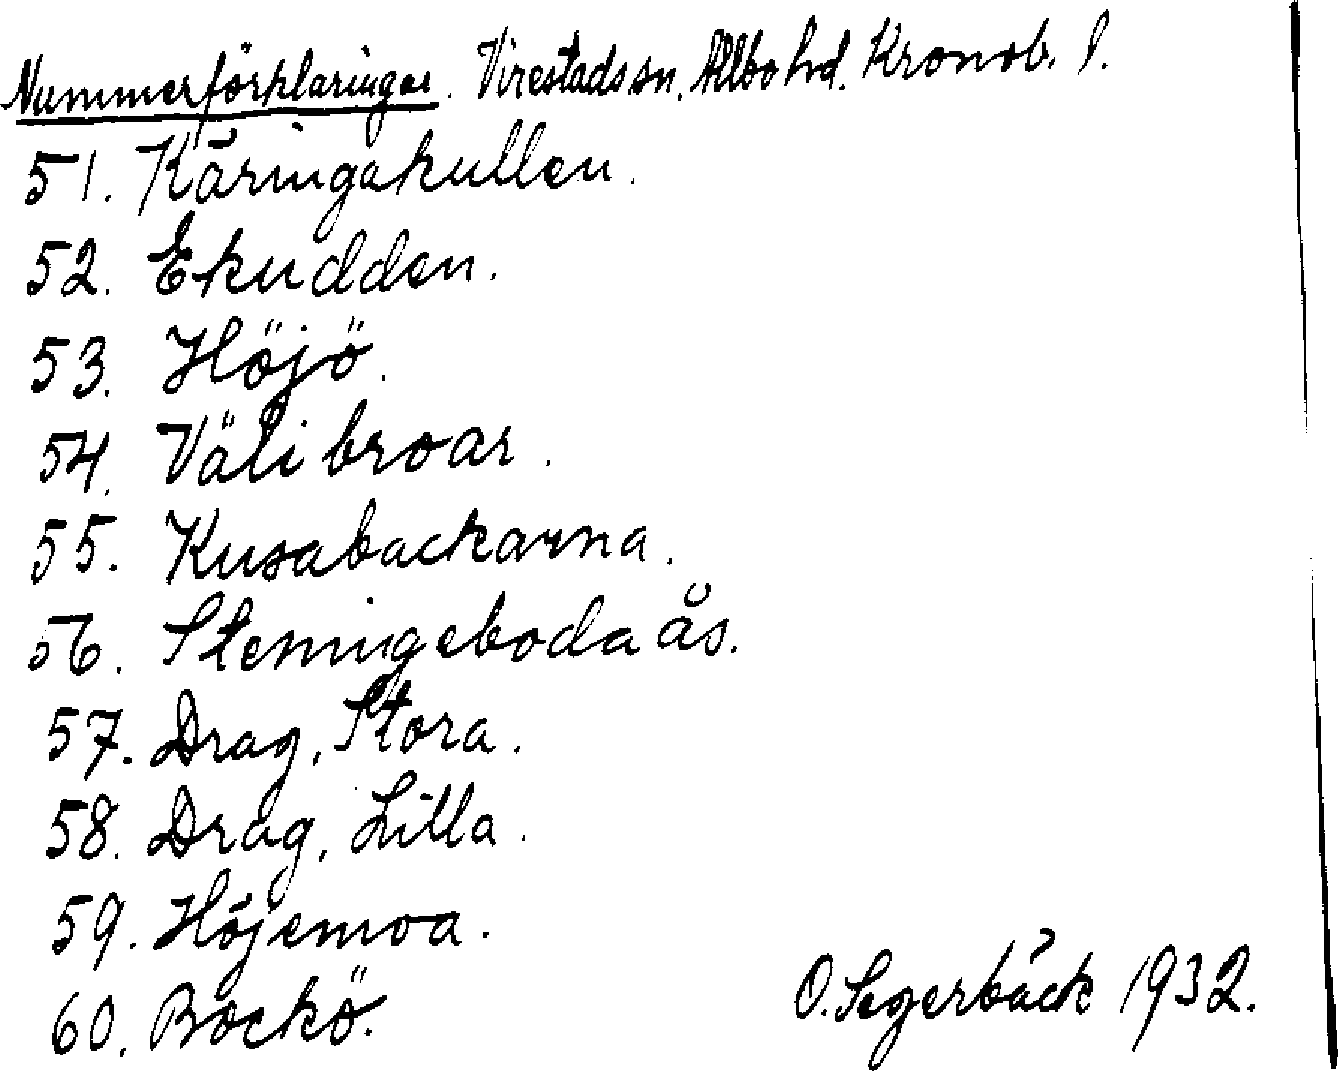 Nummerförklaringar. Virestads sn. Allbo hd. Kronob. l.
51. Käringakullen.
52. Ekudden.
53. Höjö.
54. Väli broar.
55. Kusabackarna.
56. Stemmingeboda ås.
57. Drag, Stora.
58. Drag, Lilla.
59. Höjemoa.
60. Bockö.
O. Segerbäck 1932.